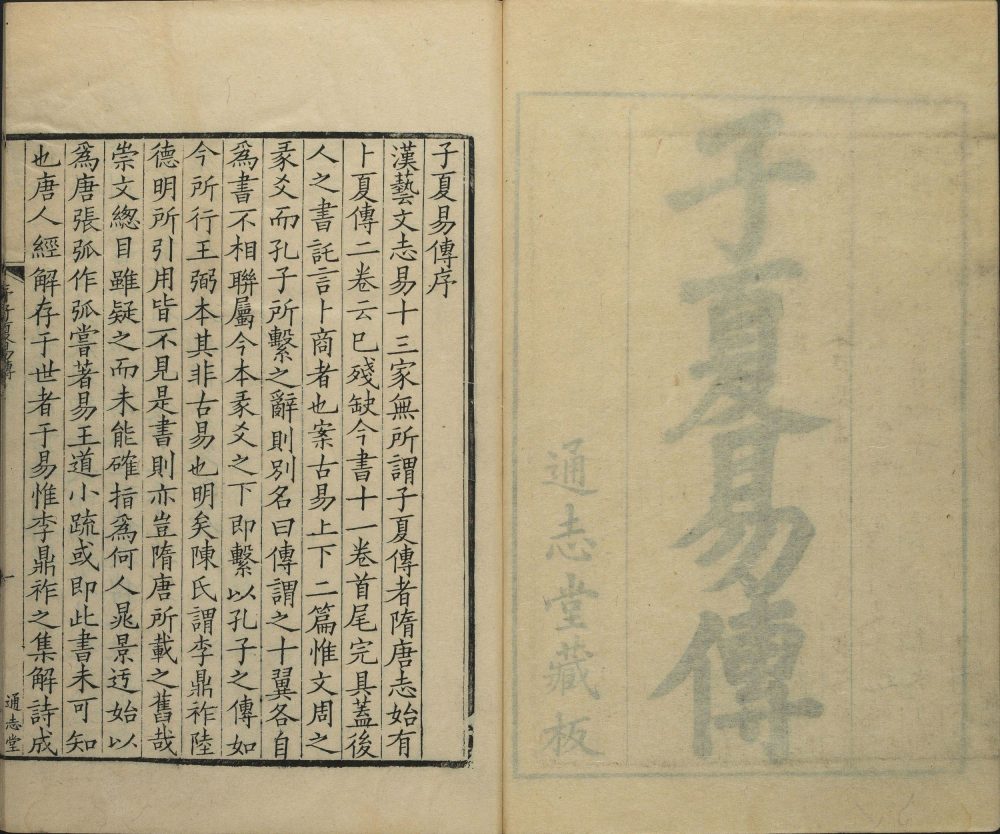 子夏易傳
通志堂藏板
子夏易傳序
漢藝文志易十三家無所謂子夏傳者隋唐志始有
卜夏傳二卷云已殘缺今書十一卷首尾完具蓋後
人之書託言卜商者也案古易上下二篇惟文周之
彖爻而孔子所繫之辭則別名曰傳謂之十翼各自
為書不相聯屬今本彖爻之下即繫以孔子之傳如
今所行王弼本其非古易也明矣陳氏謂李鼎祚陸
德明所引用皆不見是書則亦豈隋唐所載之舊哉
崇文總目雖疑之而未能確指為何人晁景迃始以
為唐張弧作弧嘗著易王道小疏或即此書未可知
也唐人經解存于世者于易惟李鼎祚之集解詩成
一
通志堂